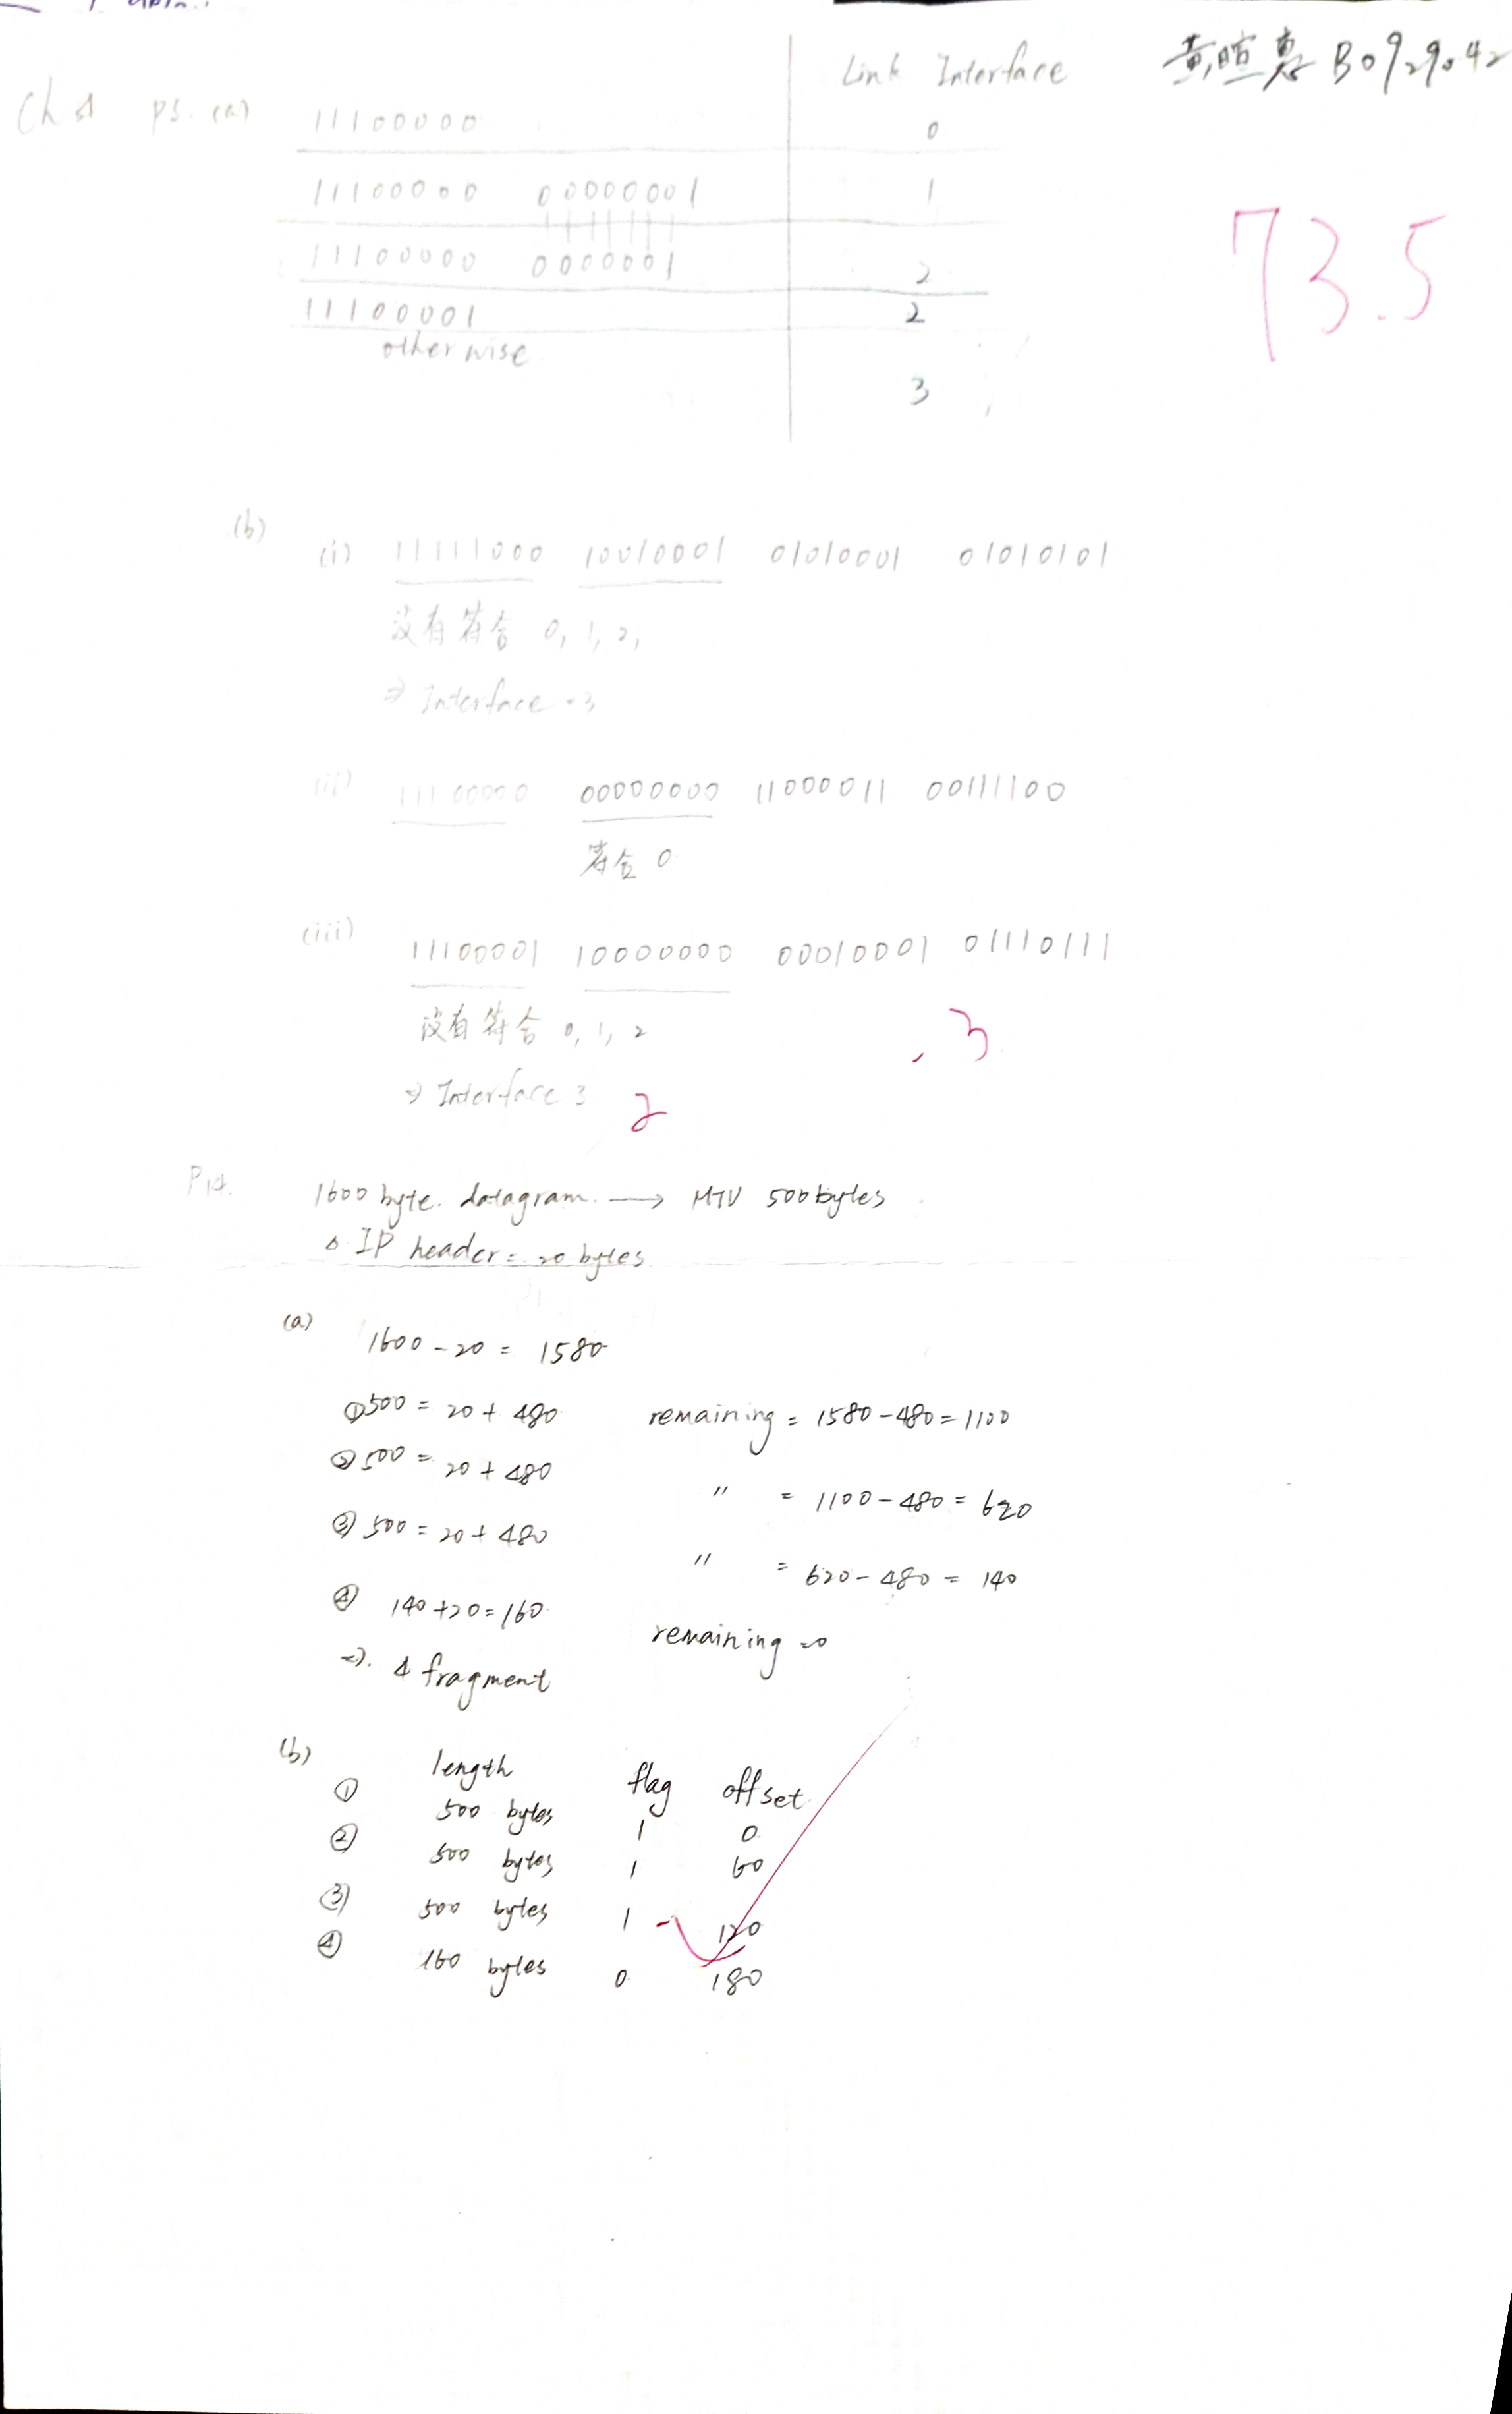 Link Interface 黃暄惠 B0929042
Ch4 P5. (a) 11100000 0
11100000 00000001 1
73.5
11100000 0000001 2
11100001 2
otherwise
3
(b)
(i) 11111000 10010001 01010001 01010101
沒有符合 0, 1, 2,
⇒ Interface = 3
(ii) 11100000 00000000 11000011 00111100
符合 0
(iii) 11100001 10000000 00010001 01110111
沒有符合 0, 1, 2
3
⇒ Interface 3 2
P14. 1600 byte. datagram. → MTU 500 bytes
△ IP header = 20 bytes
(a)
1600 - 20 = 1580
① 500 = 20 + 480 remaining = 1580 - 480 = 1100
② 500 = 20 + 480
" = 1100 - 480 = 620
③ 500 = 20 + 480
" = 620 - 480 = 140
④ 140 + 20 = 160
remaining = 0
⇒. 4 fragment
(b) length flag offset
① 500 bytes 1 0
② 500 bytes 1 60
③ 500 bytes 1 120
④ 160 bytes 0 180